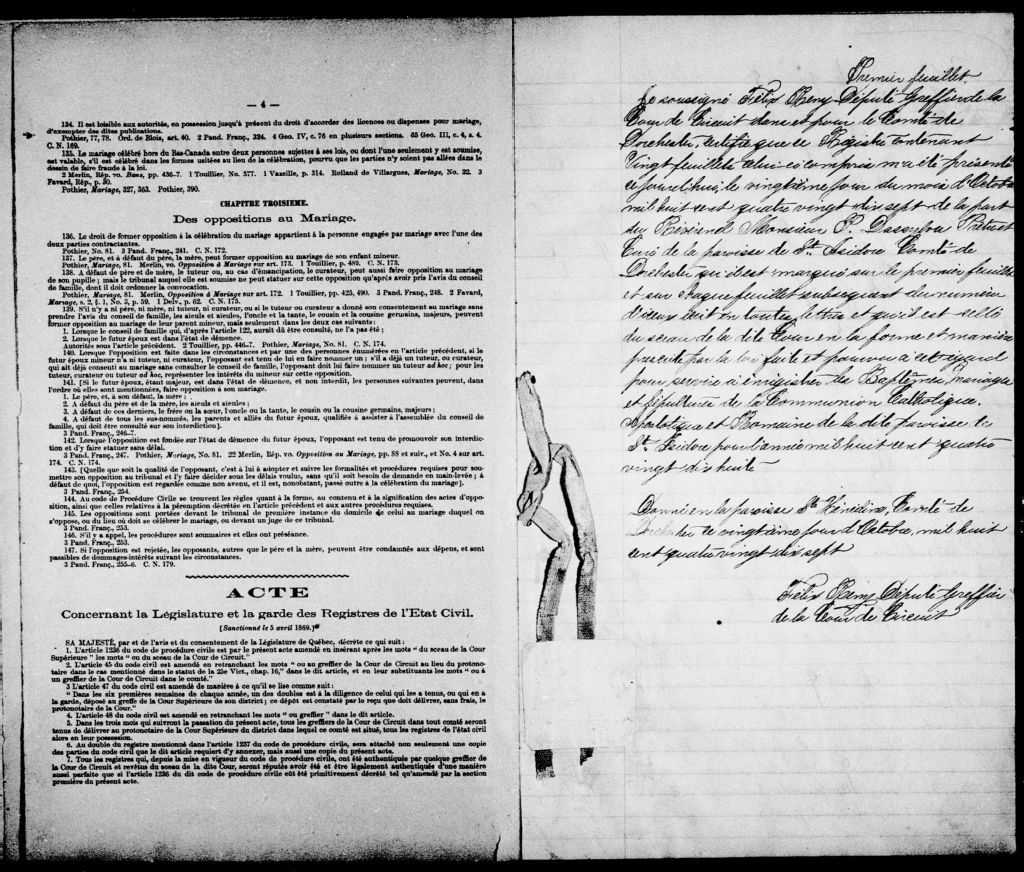 — 4 —
134. Il est loisible aux autorités, en possession jusqu'à présent du droit d'accorder des licences ou dispenses pour mariage,
d'exempter des dites publications.
Pothier, 77, 78. Ord. de Blois, art. 40. 2 Pand. Franç., 324. 4 Geo. IV, c. 76 en plusieurs sections. 35 Geo. III, c. 4, s. 4.
C. N. 169.
135. Le mariage célébré hors du Bas-Canada entre deux personnes sujettes à ses lois, ou dont l'une seulement y est soumise,
est valable, s'il est célébré dans les formes usitées au lieu de la célébration, pourvu que les parties n'y soient pas allées dans le
dessin de faire fraude à la loi.
2 Merlin, Rép. vo. Bans, pp. 436-7. 1 Touillier, No. 577. 1 Vazeille, p. 314. Rolland de Villargues, Mariage, No. 22. 3
Favard, Rép., p. 30.
Pothier, Mariage, 327, 363. Pothier, 390.
CHAPITRE TROISIEME.
Des oppositions au Mariage.
136. Le droit de former opposition à la célébration du mariage appartient à la personne engagée par mariage avec l'une des
deux parties contractantes.
Pothier, No. 81. 3 Pand. Franç., 241. C. N. 172.
137. Le père, et à défaut du père, la mère, peut former opposition au mariage de son enfant mineur.
Pothier, Mariage, 81. Merlin, vo. Opposition à Mariage sur art. 173. 1 Touillier, p. 489. C. N. 173.
138. A défaut de père et de mère, le tuteur ou, au cas d'émancipation, le curateur, peut aussi faire opposition au mariage
de son pupille; mais le tribunal auquel elle est soumise ne peut statuer sur cette opposition qu'après avoir pris l'avis du conseil
de famille, dont il doit ordonner la convocation.
Pothier, Mariage, 81. Merlin, Opposition à Mariage sur art. 172. 1 Touillier, pp. 425, 490. 3 Pand. Franç., 248. 2 Favard,
Mariage, s. 2, § 1, No. 3, p. 59. 1 Delv., p. 62. C. N. 175.
139. S'il n'y a ni père, ni mère, ni tuteur, ni curateur, ou si le tuteur ou curateur a donné son consentement au mariage sans
prendre l'avis du conseil de famille, les aïeuls et aïeules, l'oncle et la tante, le cousin et la cousine germains, majeurs, peuvent
former opposition au mariage de leur parent mineur, mais seulement dans les deux cas suivants:
1. Lorsque le conseil de famille qui, d'après l'article 122, aurait dû être consulté, ne l'a pas été;
2. Lorsque le futur époux est dans l'état de démence.
Autorités sous l'article précédent. 2 Touillier, pp. 446-7. Pothier, Mariage, No. 81. C. N. 174.
140. Lorsque l'opposition est faite dans les circonstances et par une des personnes énumérées en l'article précédent, si le
futur époux mineur n'a ni tuteur, ni curateur, l'opposant est tenu de lui en faire nommer un; s'il a déjà un tuteur, ou curateur,
qui ait déjà consenti au mariage sans consulter le conseil de famille, l'opposant doit lui faire nommer un tuteur ad hoc; pour les
tuteur, curateur ou tuteur ad hoc, représenter les intérêts du mineur sur cette opposition.
141. [Si le futur époux, étant majeur, est dans l'état de démence, et non interdit, les personnes suivantes peuvent, dans
l'ordre où elles sont mentionnées, faire opposition à son mariage.
1. Le père, et, à son défaut, la mère;
2. A défaut du père et de la mère, les aïeuls et aïeules;
3. A défaut de ces derniers, le frère ou la sœur, l'oncle ou la tante, le cousin ou la cousine germains, majeurs;
4. A défaut de tous les sus-nommés, les parents et alliés du futur époux, qualifiés à assister à l'assemblée du conseil de
famille, qui doit être consulté sur son interdiction].
3 Pand. Franç., 246-7.
142. Lorsque l'opposition est fondée sur l'état de démence du futur époux, l'opposant est tenu de promouvoir son interdic-
tion et d'y faire statuer sans délai.
3 Pand. Franç., 247. Pothier, Mariage, No. 81. 22 Merlin, Rép. vo. Opposition au Mariage, pp. 88 et suiv., et No. 4 sur art.
174. C. N. 174.
143. [Quelle que soit la qualité de l'opposant, c'est à lui à adopter et suivre les formalités et procédures requises pour sou-
mettre son opposition au tribunal et l'y faire décider sous les délais voulus, sans qu'il soit besoin de demande en main-levée; à
défaut de quoi, l'opposition est regardée comme non avenue, et il est, nonobstant, passé outre à la célébration du mariage].
3 Pand. Franç., 254.
144. Au code de Procédure Civile se trouvent les règles quant à la forme, au contenu et à la signification des actes d'oppo-
sition, ainsi que celles relatives à la péremption décrétée en l'article précédent et aux autres procédures requises.
145. Les oppositions sont portées devant le tribunal de première instance du domicile de celui au mariage duquel on
s'oppose, ou du lieu où doit se célébrer le mariage, ou devant un juge de ce tribunal.
3 Pand. Franç., 253.
146. S'il y a appel, les procédures sont sommaires et elles ont préséance.
3 Pand. Franç., 253.
147. Si l'opposition est rejetée, les opposants, autres que le père et la mère, peuvent être condamnés aux dépens, et sont
passibles de dommages-intérêts suivant les circonstances.
3 Pand. Franç., 255-6. C. N. 179.
ACTE
Concernant la Législature et la garde des Registres de l'Etat Civil.
[Sanctionné le 5 avril 1869.]
SA MAJESTÉ, par et de l'avis et du consentement de la Législature de Québec, décrète ce qui suit:
1. L'article 1236 du code de procédure civile est par le présent acte amendé en insérant après les mots "du sceau de la Cour
Supérieure" les mots "ou du sceau de la Cour de Circuit."
2. L'article 45 du code civil est amendé en retranchant les mots "ou au greffier de la Cour de Circuit au lieu du protono-
taire dans le cas mentionné dans le statut de la 25e Vict., chap. 16," dans le dit article, et en leur substituant les mots "ou à
un greffier de la Cour de Circuit dans le comté."
3 L'article 47 du code civil est amendé de manière à ce qu'il se lise comme suit:
"Dans les six premières semaines de chaque année, un des doubles est à la diligence de celui qui les a tenus, ou qui en a
la garde, déposé au greffe de la Cour Supérieure de son district; ce dépôt est constaté par le reçu que doit délivrer, sans frais, le
protonotaire de la Cour."
4. L'article 48 du code civil est amendé en retranchant les mots "ou greffier" dans le dit article.
5. Dans les trois mois qui suivront la passation du présent acte, tous les greffiers de la Cour de Circuit dans tout comté seront
tenus de délivrer au protonotaire de la Cour Supérieure du district dans lequel ce comté est situé, tous les registres de l'état civil
alors en leur possession.
6. Au double du registre mentionné dans l'article 1237 du code de procédure civile, sera attaché non seulement une copie
des parties du code civil que le dit article requiert d'y annexer, mais aussi une copie du présent acte.
7. Tous les registres qui, depuis la mise en vigueur du code de procédure civile, ont été authentiqués par quelque greffier de
la Cour de Circuit et revêtus du sceau de la dite Cour, seront réputés avoir été et être légalement authentiqués d'une manière
aussi parfaite que si l'article 1236 du dit code de procédure civile eût été primitivement décrété tel qu'amendé par la section
première du présent acte.
Premier feuillet.
Je soussigné Félix Remy Député Greffier de la
Cour de Circuit dans et pour le Comté de
Dorchester, certifie que ce Registre contenant
Vingt feuillets celui-ci compris m'a été présenté
ce jourd'hui, le vingtième jour du mois d'Octobre
mil huit cent quatre vingt dix sept de la part
du Révérend Monsieur P. Prêtre et
Curé de la paroisse de St. Isidore Comté de
Dorchester, qu'il est marqué sur le premier feuillet
et sur chaque feuillet subséquent du numéro
d'iceux écrit en toutes lettres et qu'il est scellé
du sceau de la dite Cour en la forme et manière
prescrite par la loi faite et pourvu à cet égard
pour servir à enregistrer les Baptêmes, mariages
et sépultures de la Communion Catholique,
Apostolique et Romaine de la dite paroisse de
St. Isidore pour l'année mil huit cent quatre
vingt dix huit
Donné en la paroisse Ste Hénédine, Comté de
Dorchester ce vingtième jour d'Octobre, mil huit
cent quatre vingt dix sept
Félix Remy Député Greffier
de la Cour de Circuit